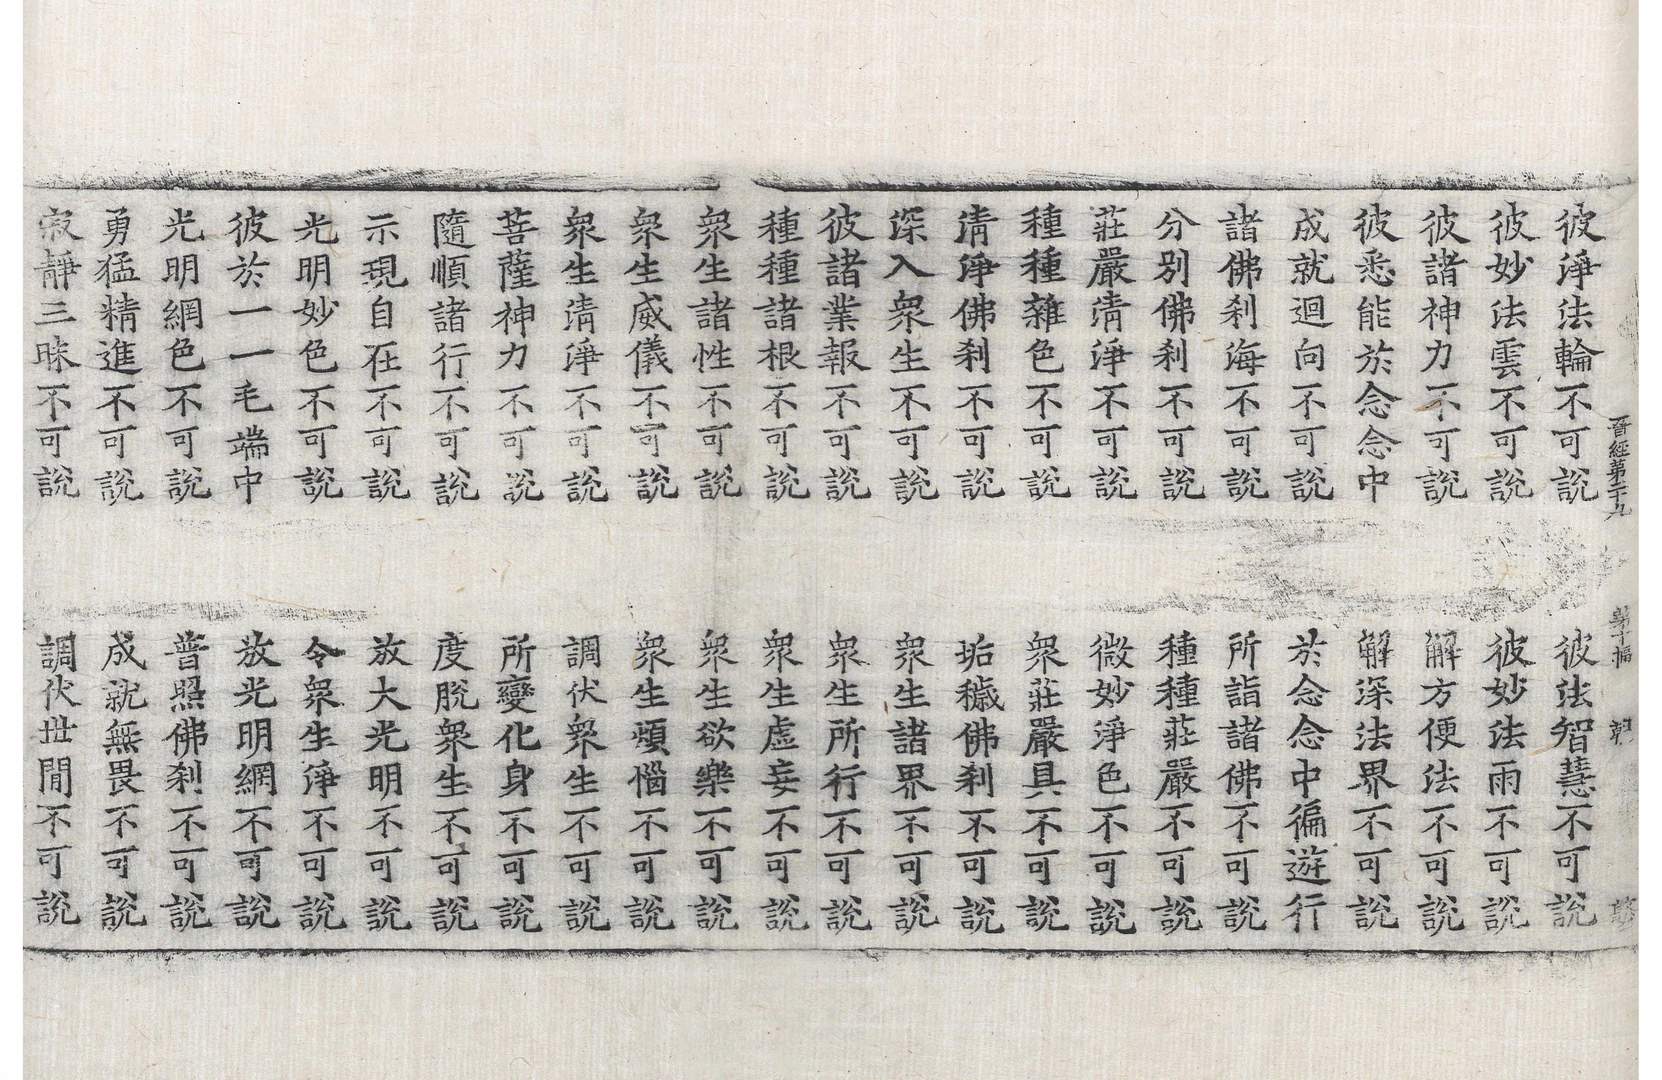 晉經第二十九 第十幅
彼淨法輪不可說 彼法智慧不可說
彼妙法雲不可說 彼妙法雨不可說
彼諸神力不可說 解方便法不可說
彼悉能於念念中 解深法界不可說
成就迴向不可說 於念念中徧遊行
諸佛刹海不可說 所詣諸佛不可說
分別佛刹不可說 種種莊嚴不可說
莊嚴清淨不可說 微妙淨色不可說
種種雜色不可說 衆莊嚴具不可說
清淨佛刹不可說 垢穢佛刹不可說
深入衆生不可說 衆生諸界不可說
彼諸業報不可說 衆生所行不可說
種種諸根不可說 衆生虛妄不可說
衆生諸性不可說 衆生欲樂不可說
衆生威儀不可說 衆生煩惱不可說
衆生清淨不可說 調伏衆生不可說
菩薩神力不可說 所變化身不可說
隨順諸行不可說 度脫衆生不可說
示現自在不可說 放大光明不可說
光明妙色不可說 令衆生淨不可說
彼於一一毛端中 放光明網不可說
光明網色不可說 普照佛刹不可說
勇猛精進不可說 成就無畏不可說
寂靜三昧不可說 調伏世間不可說